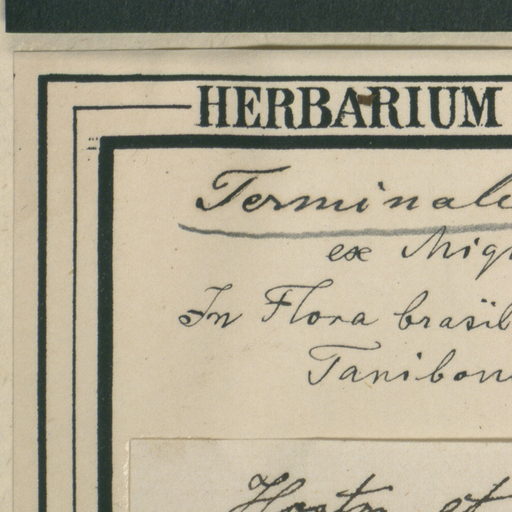 HERBARIUM
Terminal
ex Miq
In Flora brasil
Tanibou
Hostm et